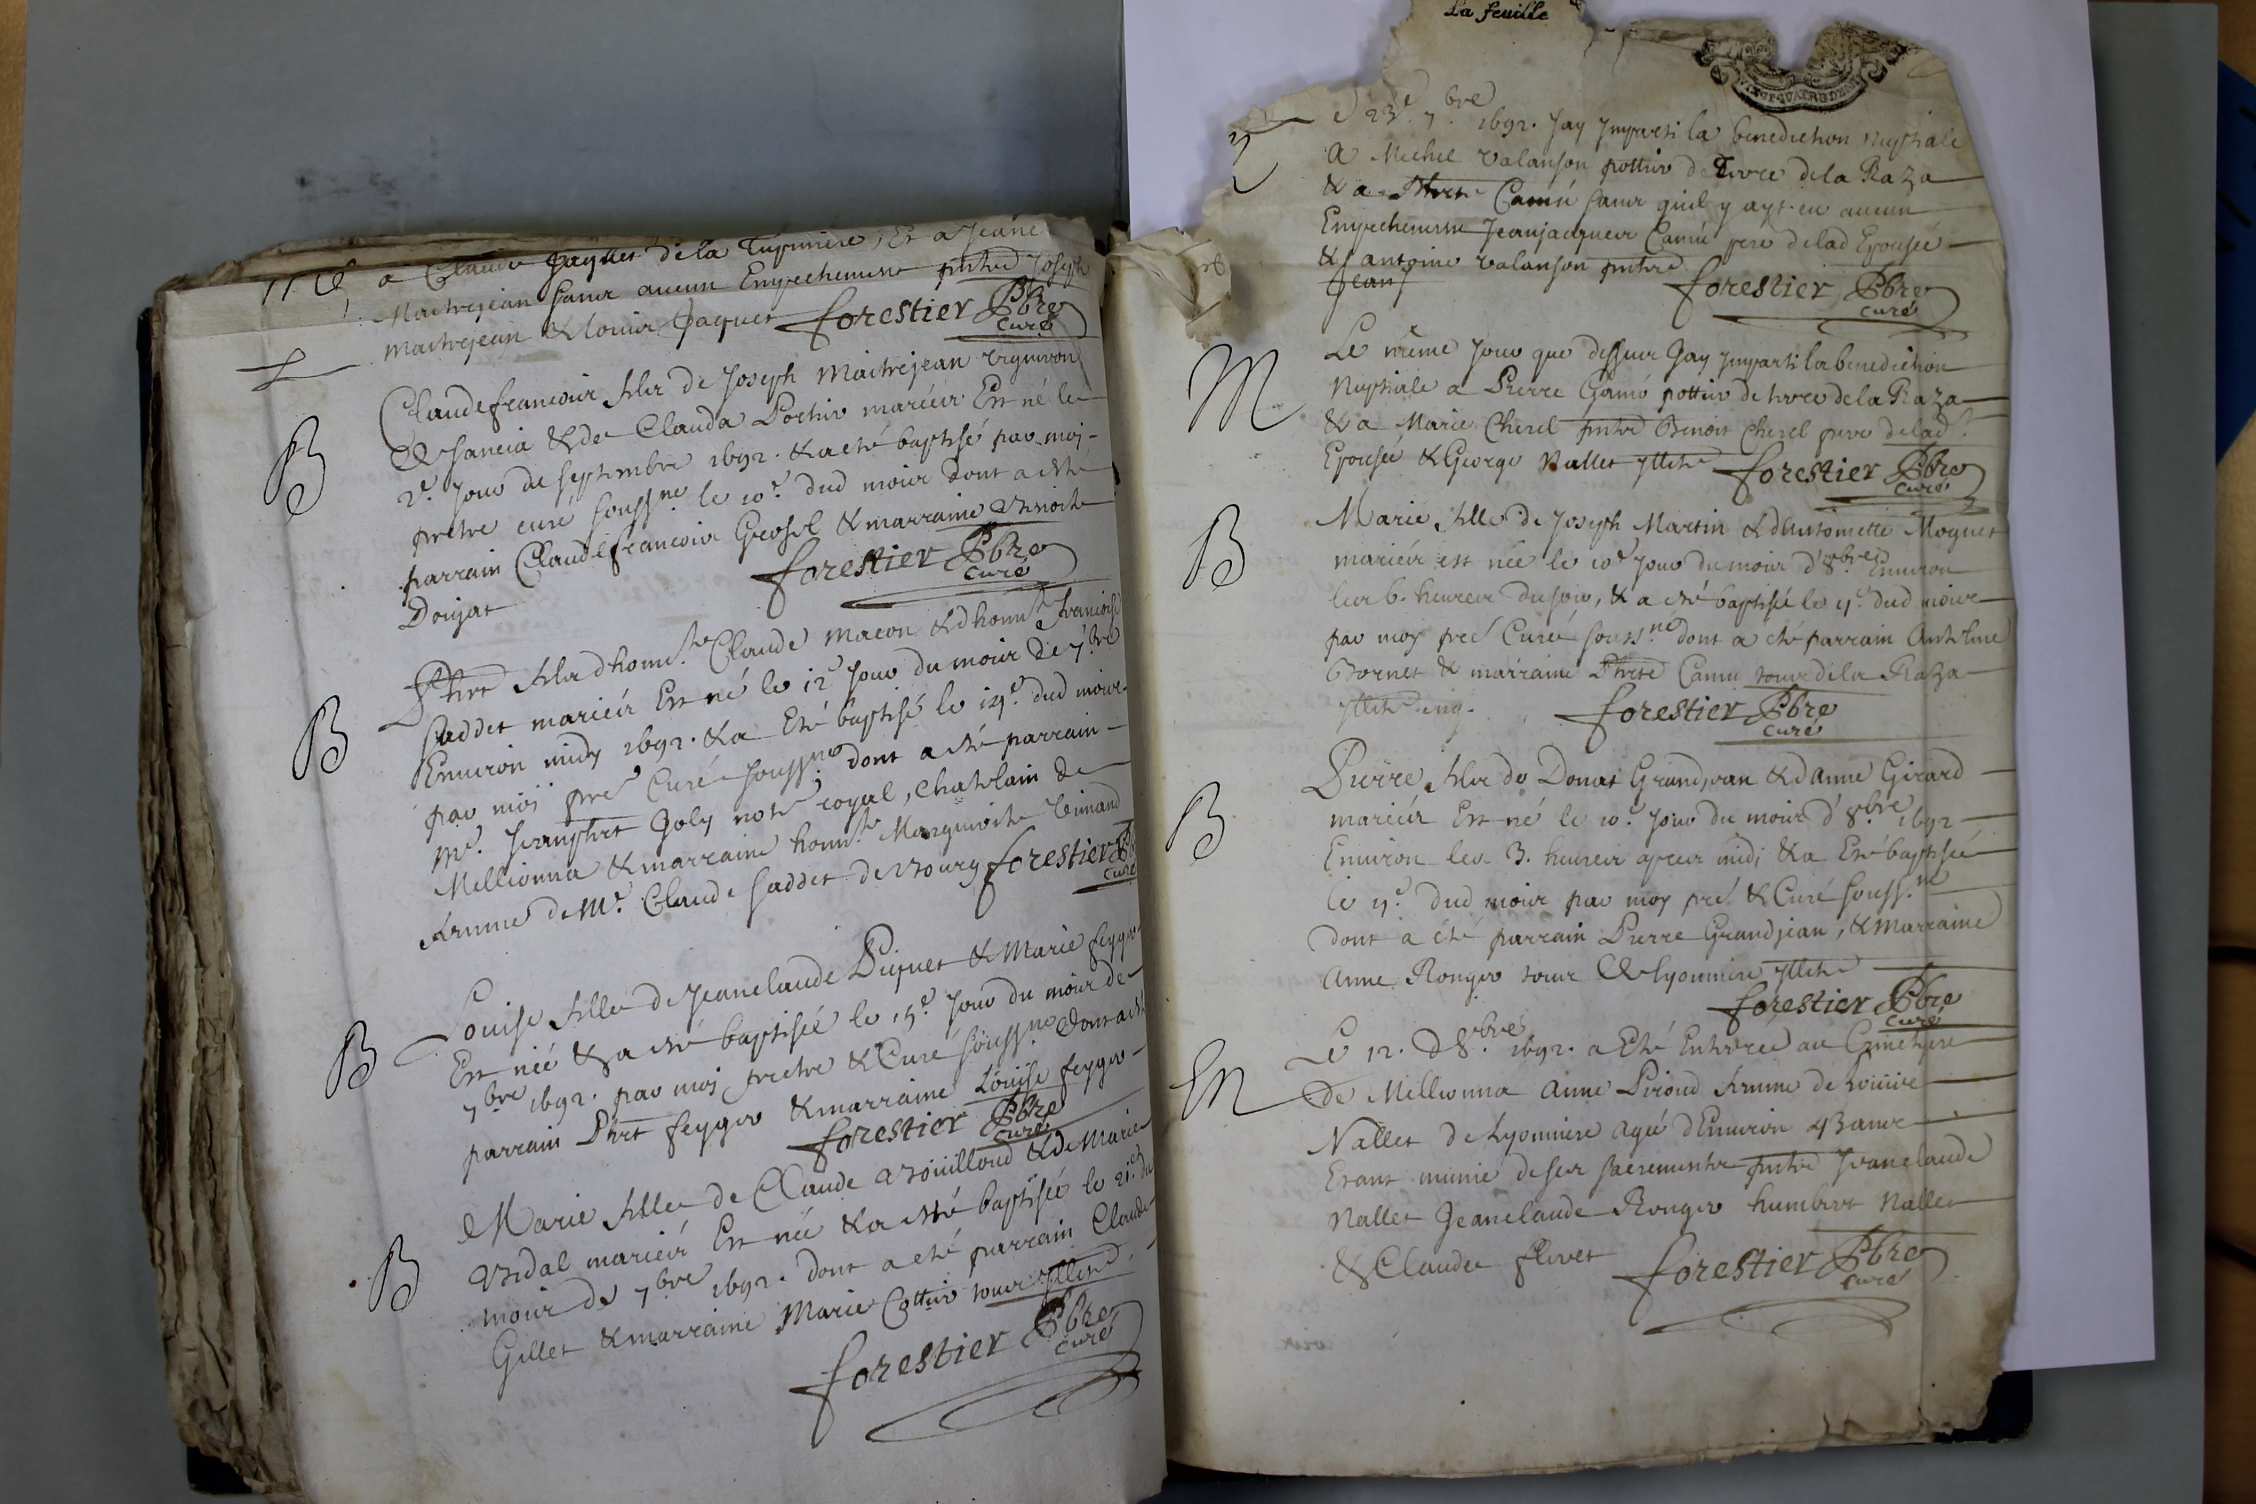 a Claude Jaquet de la Tupiniere, Et a Jeane
Maitrejean sans aucun Empechement pntrd Joseph
maitrejean & louis Jaquet forestier Pbre
curé
B
Claudefrancois fils de Joseph Maitrejean vigniron
& de Clauda Portier mariés Est né le
2e. Jour de septembre 1692. & a eté baptisé par moi
pretre curé souss.né le 10e. dud mois dont a eté
parrain Claudefrancois Grosel & marraine Benoite
Doujat
forestier Pbre
curé
B
fils dhonn.te Claude macon & dhonn.te francoise
saddet mariés Est né le 12e Jour du mois de 7.bre
Environ midy 1692. & a Eté baptisé le 14e. dud mois
par moi pre Curé souss.né dont a eté parrain
Me. Joly notre royal, chatelain de
Millionna & marraine honn.te Marguerite
femme de Me. Claude saddet de Bourg forestier
curé
B
Louise fille de Jeanclaude Piquet & Marie feyger
Est née & a eté baptisée le 15e. Jour du mois de
7bre 1692. par moi pretre & Curé souss.né dont a eté
parrain Phrt feyger & marraine Louise feyger
forestier Pbre
curé
B
Marie fille de Claude Bouilloud & de Marie
Vidal mariés Est née & a eté baptisée le 21e. du
mois de 7bre 1692. dont a eté parrain Claude
Gillet & marraine Marie Cottier tous
forestier Pbre
curé
La feuille
VINGT QUATRE DEN
e 23e. 7.bre 1692. Jay Imparti la benediction Nuptiale
A Michel Valanson pottier de terre de la Raza
& a Phrte Camu sans quil y ayt eu aucun
Empechement Jeanjacques Camu pere de lad Epousée
& antoine Valanson pntrd
Jean
forestier Pbre
curé
M
Le même Jour que dessus Jay Imparti la benediction
Nuptiale a Pierre Camu pottier de terre de la Raza
& a Marie Cherel pntrd Benoit Cherel pere de lad.
Epousée & George Nallet yllitré forestier Pbre
curé
B
Marie fille de Joseph Martin & dAntoinette Moquet
mariés est née le 10e Jour du mois d'8.bre Environ
les 6. heures du soir, & a eté baptisée le 11e. dud mois
par moy pre Curé souss.né dont a eté parrain Anthelme
Bornet & marraine Phrte Camu tous de la Raza
yllitré inq.
forestier Pbre
curé
B
Pierre fils de Donat Grandjean & dAnne Girard
mariés Est né le 10e. Jour du mois d'8.bre 1692
Environ les 3. heures apres midi & a Eté baptisée
le 11e. dud mois par moy pre. & Curé souss.né
dont a été parrain Pierre Grandjean, & Marraine
Anne Ronger tous de lyonniere yllitré
forestier Pbre
curé
M
Le 12. d'8.bre 1692. a Eté Enterée au Cimetiere
de Millionna Anne Piroud femme de
Nallet de Lyonniere agée dEnviron 43 ans
Etant munie de ses sacrements pntrd Jeanclaude
Nallet Jeanclaude Ronger humbert Nallet
& Claude flivet forestier Pbre
curé